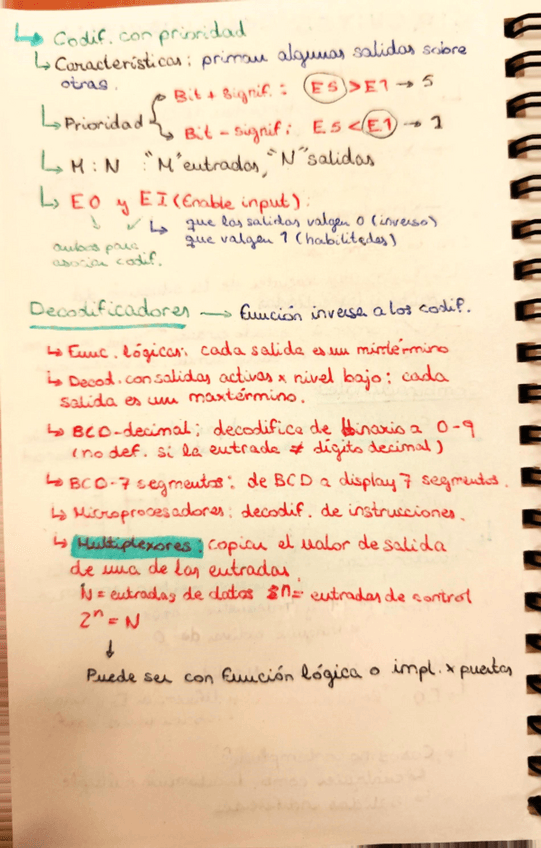 ↳ Codif. con prioridad
↳ Características: priman algunas salidas sobre
otras.
Bit + signif.: E5 > E1 → 5
↳ Prioridad
Bit - signif: E5 < E1 → 1
↳ M : N "M" entradas, "N" salidas
↳ EO y EI (Enable input):
↳ que las salidas valgan 0 (inverso)
que valgan 1 (habilitadas)
ambos para
asociar codif.
Decodificadores → Función inversa a los codif.
↳ Func. lógicas: cada salida es un mintérmino
↳ Decod. con salidas activas x nivel bajo: cada
salida es un maxtérmino.
↳ BCD-decimal: decodifica de binario a 0-9
(no def. si la entrada ≠ dígito decimal)
↳ BCD-7 segmentos: de BCD a display 7 segmentos.
↳ Microprocesadores: decodif. de instrucciones.
↳ Multiplexores: copian el valor de salida
de una de las entradas.
N = entradas de datos n = entradas de control
2^n = N
↓
Puede ser con función lógica o impl. x puertas